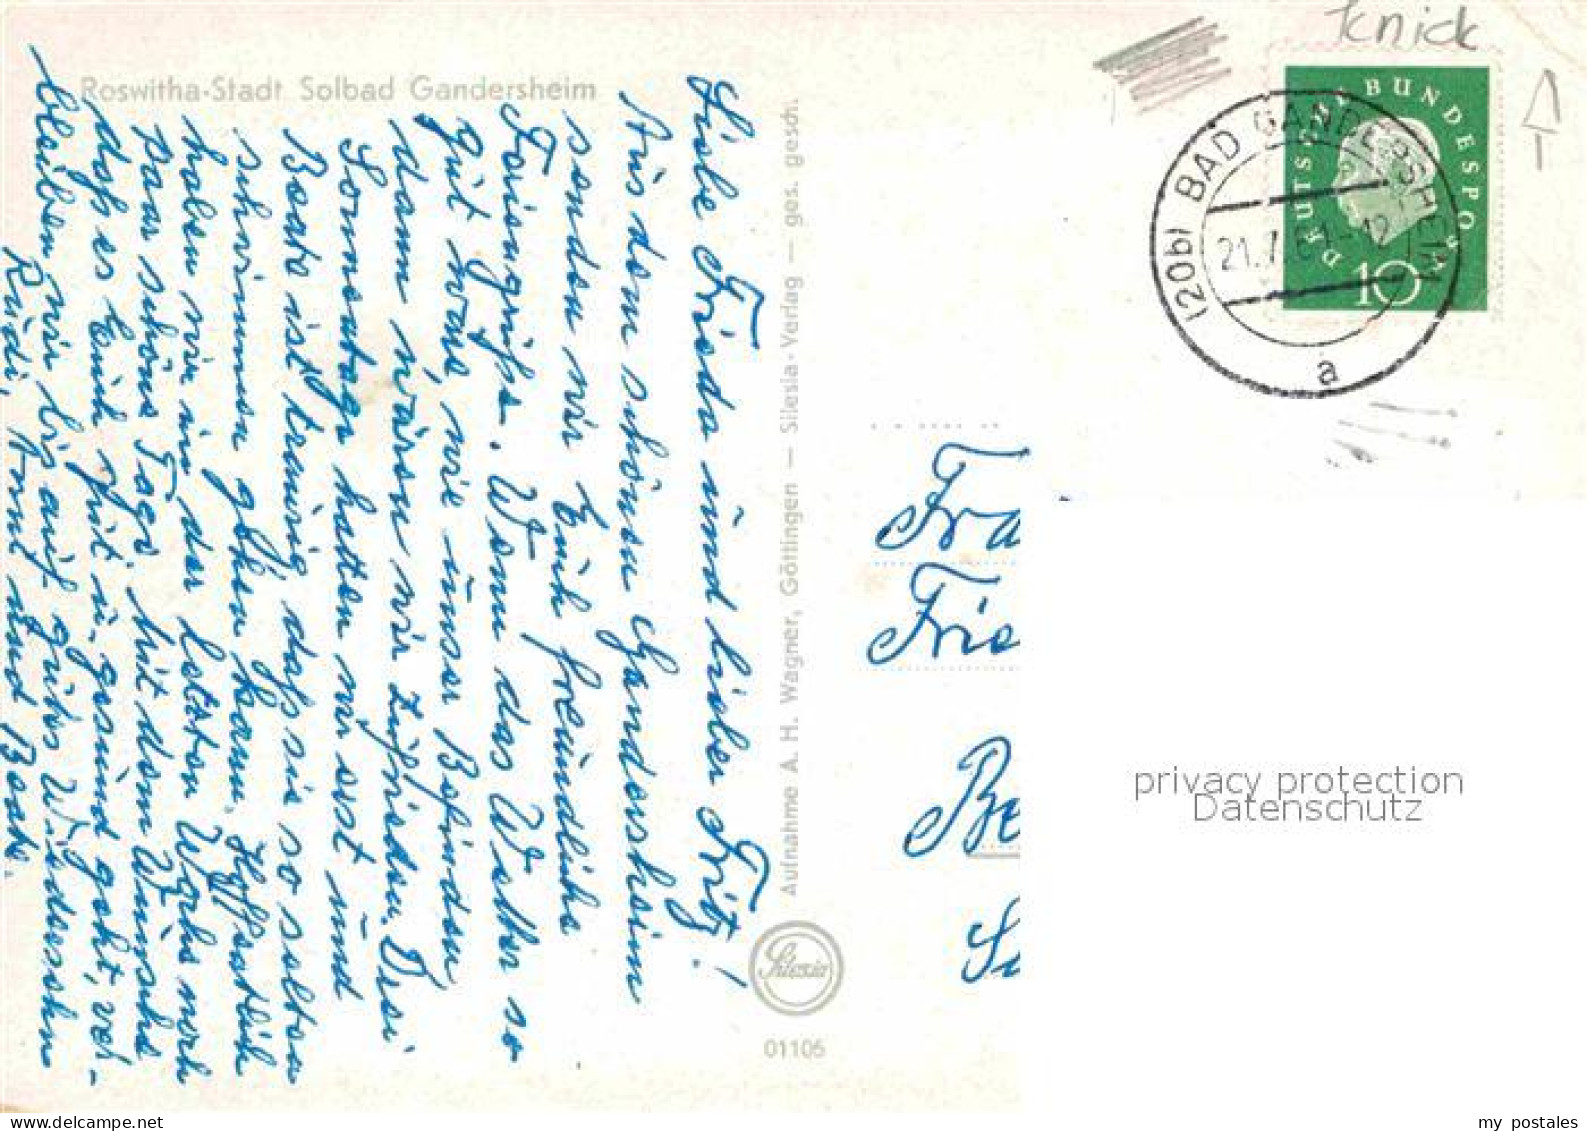 Roswitha-Stadt Solbad Gandersheim
Liebe Frieda und lieber Fritz!
Aus dem schönen Gandersheim
senden wir Euch freundliche
Feriengrüße. Wenn das Wetter so
gut wäre, wie unser Befinden,
dann wären wir zufrieden. Drei
Sonnentage hatten wir erst und
Beate ist traurig, daß sie so selten
schwimmen gehen kann. Hoffentlich
haben wir in der letzten Woche noch
paar schöne Tage. Mit dem Wunsche
daß es Euch gut u. gesund geht, ver-
bleiben wir bis auf gutes Wiedersehn
Rudi, Anni und Beate.
Aufnahme A. H. Wagner, Göttingen — Silesia-Verlag — ges. gesch.
Silesia
01105
Knick
DEUTSCHE BUNDESPOST
10
(20b) BAD GANDERSHEIM
a
Fra
Frie
Be
privacy protection
Datenschutz
my postales